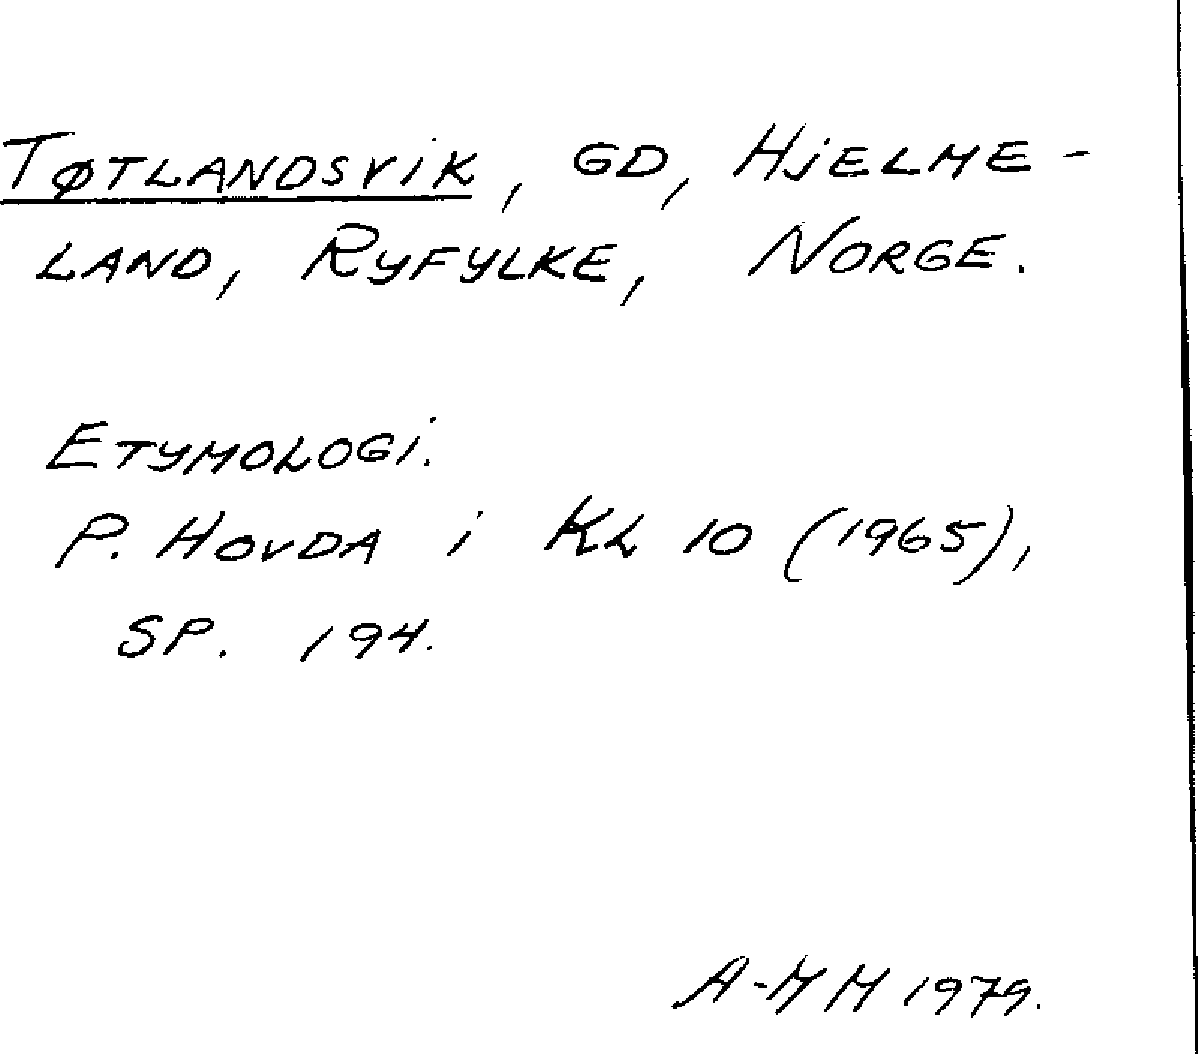 TØTLANDSVIK, GD, HJELME-
LAND, RYFYLKE, NORGE.
ETYMOLOGI.
P. HOVDA i KL 10 (1965),
SP. 194.
A-MM 1979.